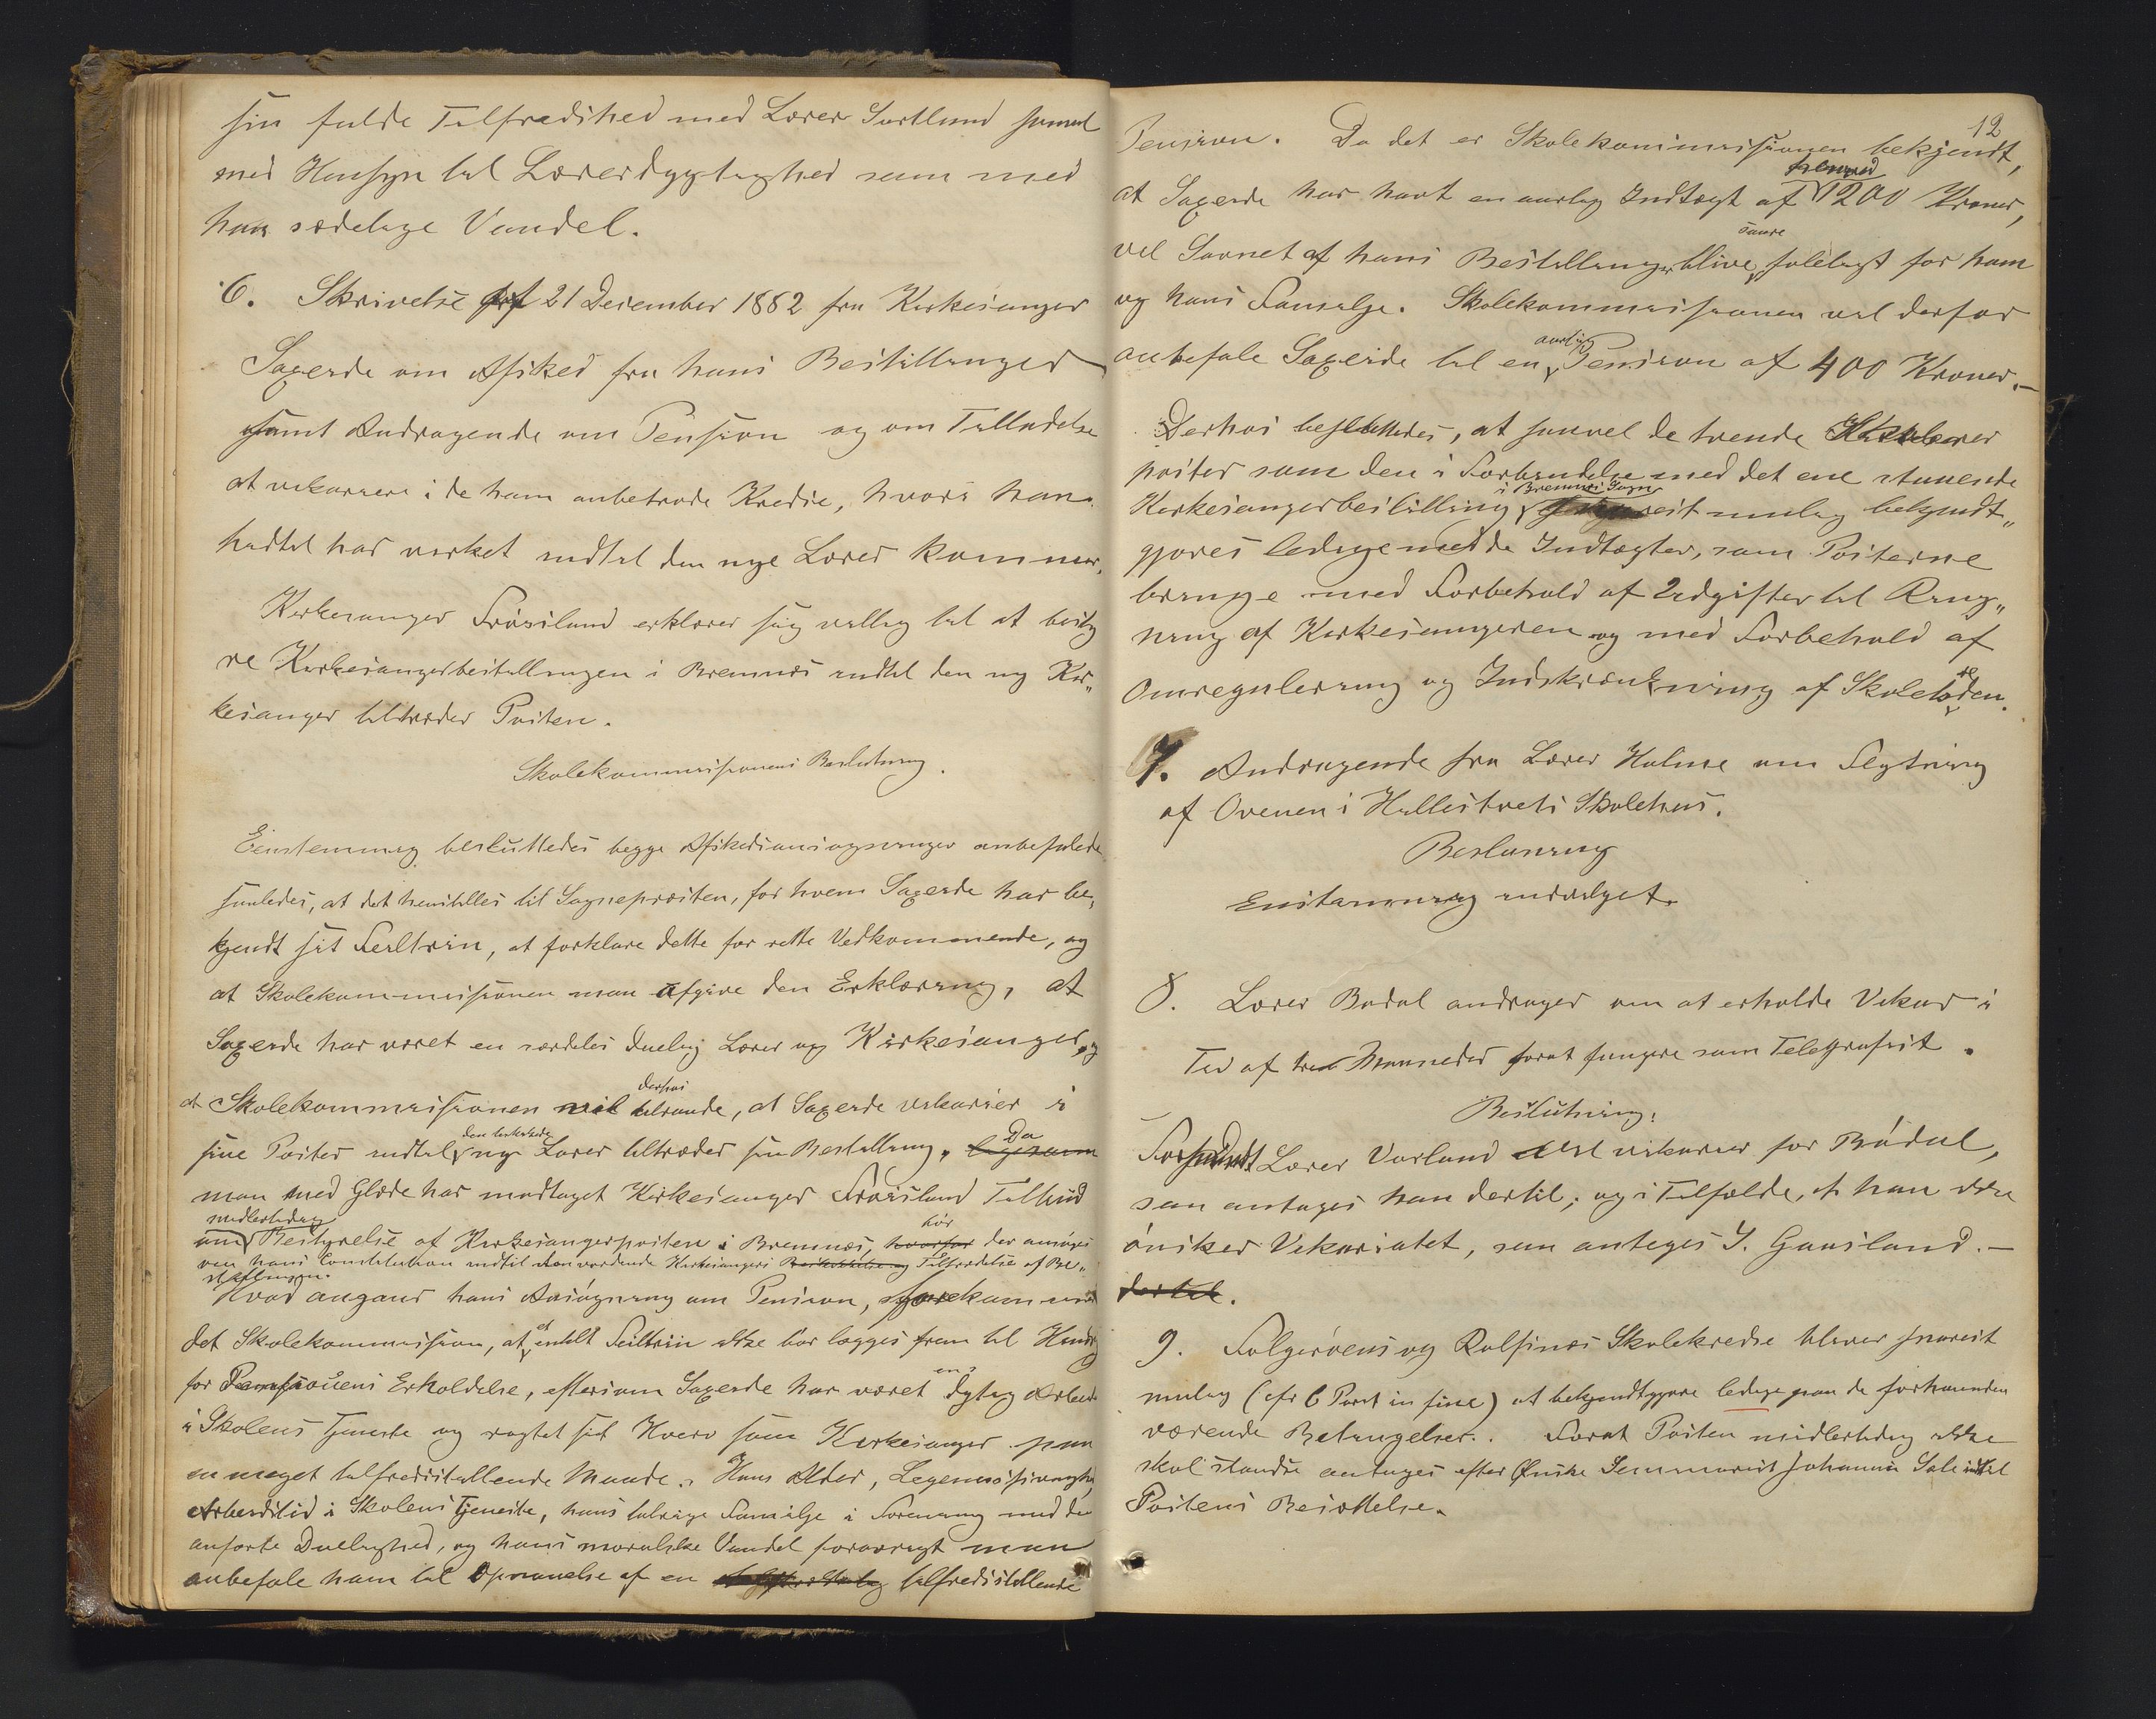 sin fulde Tilfredshed med Lærer Sortland saavel
med Hensyn til Lærerdygtighed som med
hans sædelige Vandel.
6. Skrivelse af 21 December 1882 fra Kirkesanger
Sagerde om Afsked fra hans Bestillinger
samt Andragende om Pension og om Tilladelse
at vikariere i de ham anbetrode Kredse, hvori han
hidtil har virket indtil den nye Lærer kommer.
Kirkesanger Frøisland erklærer sig villig til at besty
re Kirkesangerbestillingen i Bremnes indtil den ny Kir„
kesanger tiltræder Posten.
Skolekommissionens Beslutning.
Eenstemmig besluttedes begge Afskedsansøgninger anbefalede
saaledes, at det henstilles til Sognepresten, for hvem Sagerde har be„
kjendt sit Feiltrin, at forklare dette for rette Vedkommende, og
at Skolekommissionen maa afgive den Erklæring, at
Sagerde har været en særdeles duelig Lærer og Kirkesanger, og
at Skolekommissionen vil derhos tilraade, at Sagerde vikarier i
sine Poster indtil den beskikkede ny Lærer tiltræder sin Bestilling. ligesom Da
man med Glæde har modtaget Kirkesanger Frøislands Tilbud
om midlertidig Bestyrelse af Kirkesangerposten i Bremnes, hvorfor bør der ansøges
om hans Constitution indtil den vordende Kirkesangers Beskikkelse og Tiltrædelse af Be„
stillingen.
Hvad angaar hans Ansøgning om Pension, forekommer
det Skolekommission, at et enkelt Feiltrin ikke bør lægges frem til Hindr
for Pensionens Erholdelse, eftersom Sagerde har været en dygtig Arbeider
i Skolens Tjeneste og røgtet sit Hverv som Kirkesanger paa
en meget tilfredsstillende Maade. Hans Alder, Legems
Arbeidstid i Skolens Tjeneste, hans talrige Familje i Forening med den
anførte Duelighed, og hans moralske Vandel forøvrigt maa
anbefale ham til Opnaaelse af en tilfredsstillende
12
Pension. Da det er Skolekommissionen bekjendt,
at Sagerde har havt en aarlig Indtægt af henved 1200 Kroner,
vil Savnet af hans Bestillinger blive saare føleligt for ham
og hans Familje. Skolekommissionen vil derfor
anbefale Sagerde til en aarlig Pension af 400 Kroner.—
Derhos besluttedes, at saavel de tvende Skolelærer
poster som den i Forbindelse med det ene staaende
Kirkesangerbestilling i Bremnes Sogn snarest mulig bekjendt„
gjøres ledige med de Indtægter, som Posterne
bringe med Forbehold af Udgifter til Ring„
ning af Kirkesangeren og med Forbehold af
Omregulering og Indskrænkning af Skoletiden.
7. Andragende fra Lærer Holme om Flytning
af Ovnen i Hallestvets Skolehus.
Beslutning
Enstemmig indvilget.
8. Lærer Bødal andrager om at erholde Vikar i
Tid af tre Maaneder forat fungere som Telegrafist.
Beslutning:
Forsaavidt Lærer Vorland vil vikariere for Bødal,
saa antages han dertil; og i Tilfælde, at han ikke
ønsker Vikariatet, saa antages I. Gaasland.—
dertil.
9. Folgerøens og Rolfsnes Skolekredse bliver snarest
mulig (cfr 6 Post in fine) at bekjendtgjøre ledige paa de forhaanden
værende Betingelser. Forat Posten midlertidig ikke
skal standse antages efter Ønske Seminarist Johannes Sele indtil
Postens Besættelse.